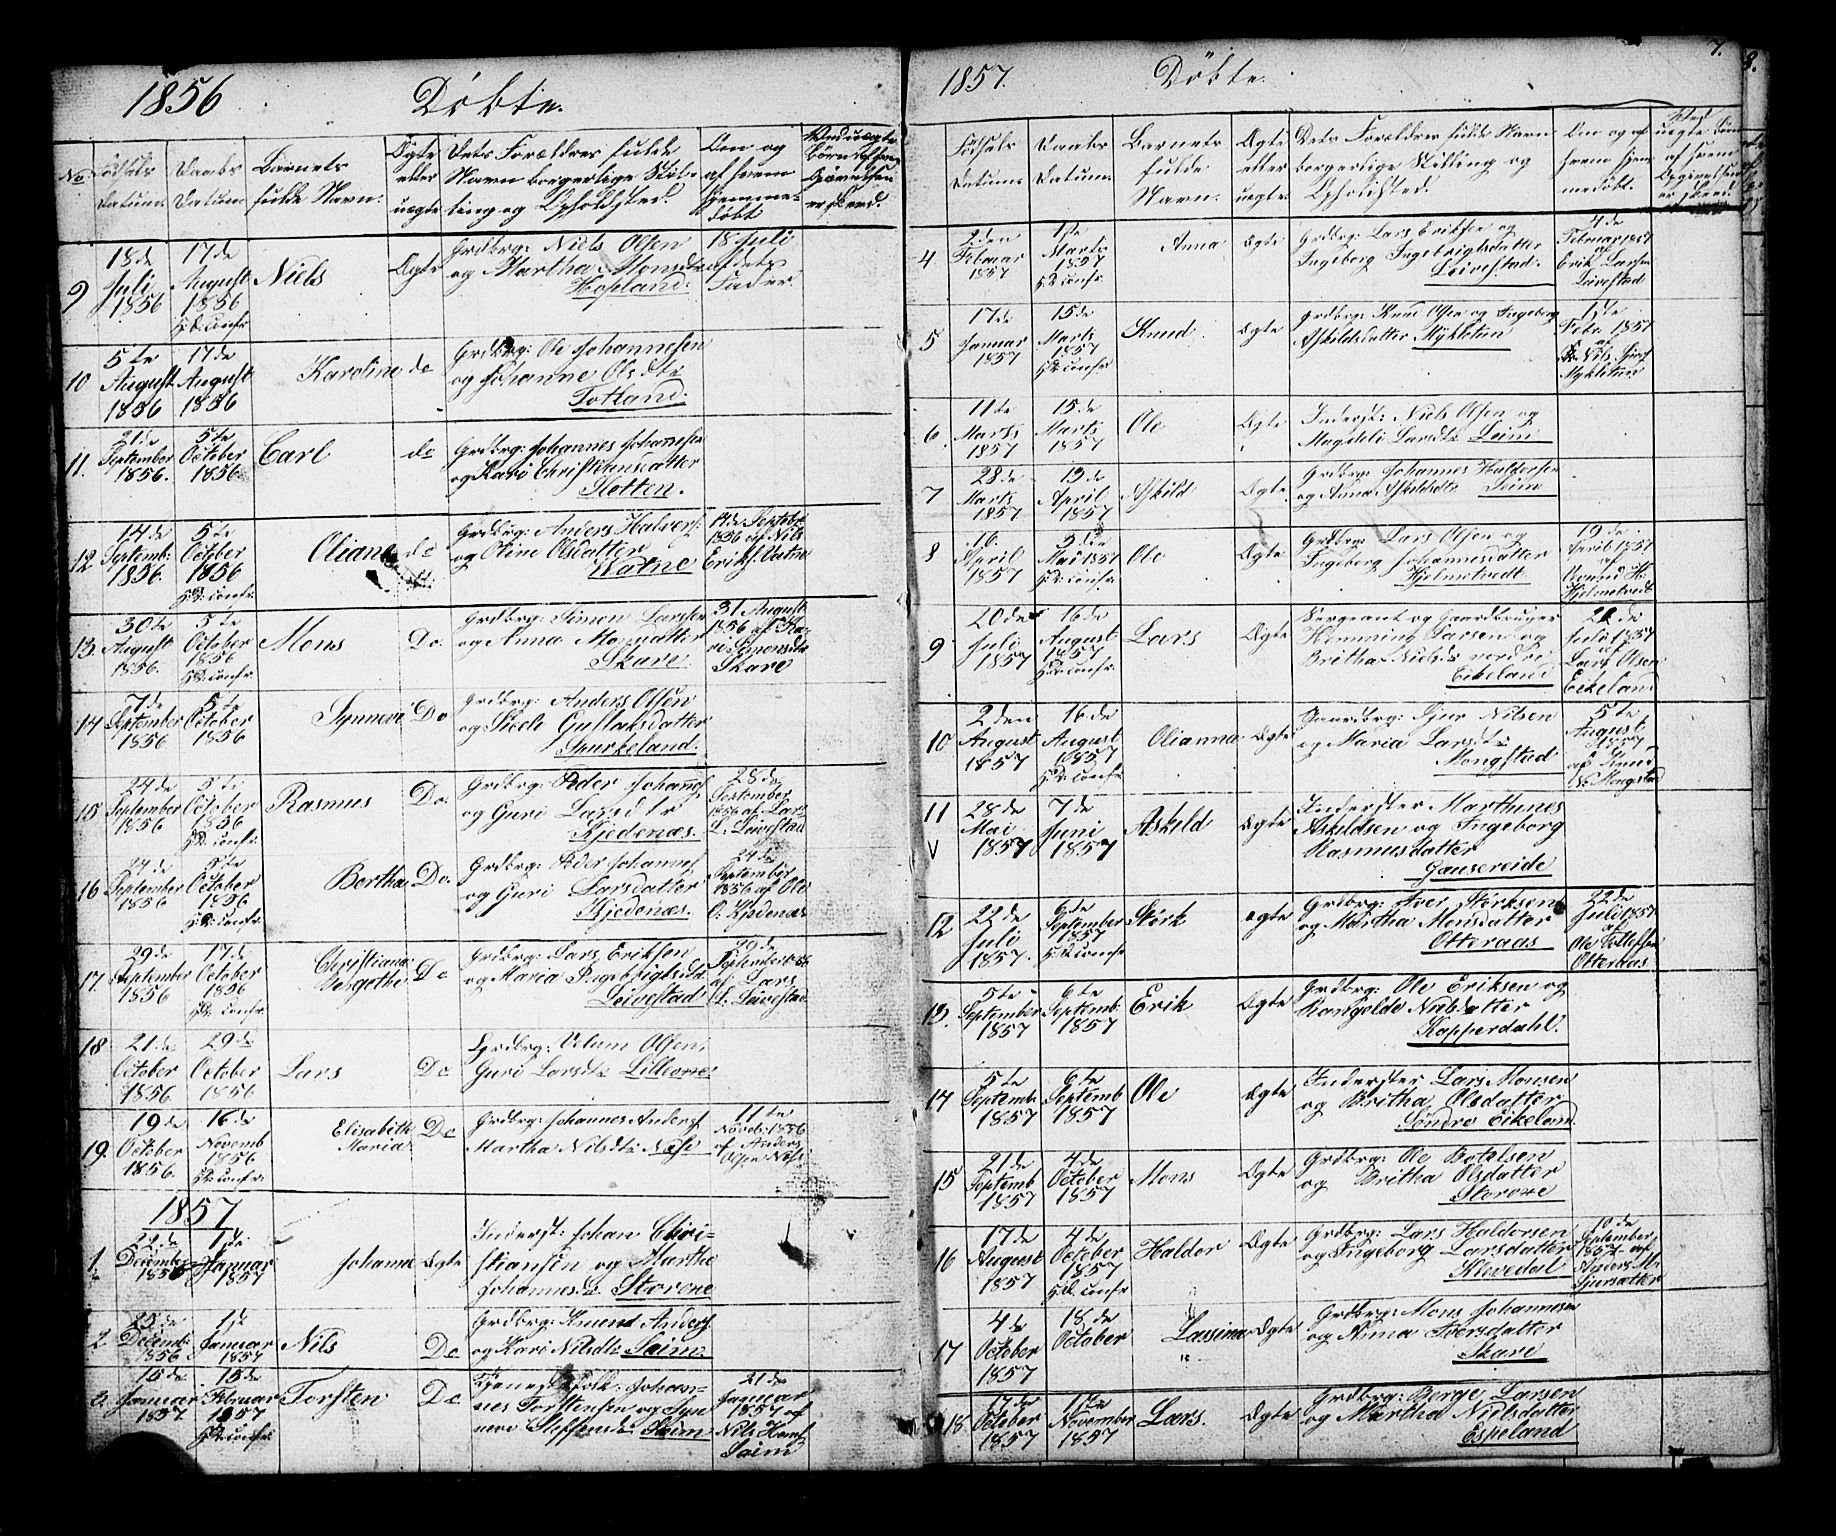 1856 Döbte.
No. Födsels Datum. Daabs Datum. Barnets fulde Navn. Ægte eller uægte Dets Forældres fulde Navn borgerlige Stilling og Opholdsted. Om og af hvem hjemmedöbt
9 18de Juli 1856 17de August 1856 Hd: Confr: Niels Ægte Grdbrg: Niels Olsen
og Martha Monsdtr
Hopland. 18 Juli af dets Fader.
10 5te August 1856 17de August 1856 Karoline do Grdbrg: Ole Johannesen
og Johanne Olsdtr
Totland.
11. 21de September 1856. 5te October 1856 Carl do Grdbrg: Johannes Johannesen
og Kari Christiansdatter
Sletten.
12 14de Septemb: 1856. 5te October 1856 Hd: Confr: Oliane do Grdbrg: Anders Halvors:
og Oline Olsdatter
14de Septbr 1856 af Nils Eriks:
13. 30te August 1856. 5te October 1856 Hd: Confr Mons Do. Grdbrg: Simon Larssen
og Anna Monsdatter
Skare. 31 August 1856 af Kari Simonsdtr Skare
14 7de September 1856 5te October 1856 Synneve Do Grdbrg: Anders Olsen
og Sisele Gullaksdatter
Spurkeland.
15 24de September 1856 5te October 1856 Hd: Confr: Rasmus Do. Grdbrg: Peder Johannes
og Guri Larsdtr
Kjedenæs. 28de September 1856 af Lars L. Leivestad
16 24de September 1856 5te October 1856 Hd: Confr Bertha Do. Grdbrg: Peder Johannes
og Guri Larsdatter
Kjedenæs. 24de September 1856 af Ole O. Kjedenæs
17. 29de September 1856 17de October 1856 Hd: Confr. Christiana Do Grdbrg: Lars Eriksen
og Maria Ingebrigtsdt
Leivestad 29de September 1856 af Lars L. Leivestad
18. 21de October 1856. 29de October 1856 Lars Do Grdbrg: Olsen,
Guri Larsdtr Lilleone
19. 19de October 1856. 16de Novemb 1856 Hd: Confr: Elisabeth Maria Do Grdbrg: Johannes Anders
Martha Nilsdtr Næse 11te Novbr: 1856 af Anders Olsen Næse
1857
1. 22de December 1856 1de Januar 1857 Johanne Ægte Inderst: Johan Christiansen og Martha
Johannesdtr Storene
2. 25de Decemb: 1856 1ste Januar 1857 Nils Do Grdbrg: Knud Anders
og Kari Nilsdtr Seim.
3. 15de Januar 1857 15de Februar 1857 Hd: Confr: Torsten Do Tjenestfolk: Johannes Torstensen og Synneve Steffensdtr Seim 21de Januar 1857 af Nils Seim
1857. Döbte. 7. 8.
Födsels Datum. Daabs Datum. Barnets fulde Navn. Ægte eller uægte. Dets Forældres fulde Navn borgerlige Stilling og Opholdsted. Om og af hvem hjemmedöbt.
4 2den Februar 1857 1ste Marts 1857 Hd: Confr: Anna Ægte Grdbrg: Lars Eriksen og
Ingeborg Ingebrigtsdatter
Leivestad. 4de Februar 1857 af Erik Larsen Leivestad
5 17de Januar 1857 15de Marts 1857 Hd: Confr: Knud Ægte Grdbrg: Knud Olsen og Ingeborg
Askildsdatter Mykletun 1ste Febr. 1857 af Nils Mykletun
6. 11te Marts 1857 15de Marts 1857 Ole Ægte Inderst: Niels Olsen og
Magdeli Larsdtr Seim
7 28de Marts 1857 13de April 1857 Askild Ægte Grdbrg: Johannes Haldorsen
og Anna Askildsdtr Seim
8 16. April 1857 3de Mai 1857 Hd: Confr: Ole Ægte Grdbrg: Lars Olsen og
Ingeborg Johannesdatter
Hjelmetvedt 19de April 1857 af H: Hjelmetvedt
9 20de Juli 1857 16de August 1857 Hd: Confr: Lars Ægte Sergeant og Gaardbruger
Hemming Larsen og
Britha Nielsdtr nordre
Eikeland 21de Juli 1857 af Lars Olsen Eikeland
10 2den August 1857 16de August 1857 Hd: Confr Olianna Ægte Gaardbrg: Sjur Nilsen
og Maria Larsdtr
Mongstad 5te August 1857 af Knud N. Mongstad
11 V 28de Mai 1857 7de Juni 1857 Askild Ægte Inderster Marthines
Askildsen og Ingeborg
Rasmusdatter
Gausereide
12 22de Juli 1857. 6te September 1857 Hd: Confr Störk Ægte Grdbrg: Iver Störksen
og Martha Monsdatter
Otteraas 22de Juli 1857 af Ole Otteraas
13. 5te September 1857 6te Septemb: 1857 Erik Ægte Grdbrg: Ole Eriksen og
Nilsdatter
Kopperdahl.
14 5te Septemb: 1857 6te Septemb 1857 Ole Ægte Inderster Lars Monsen
og Britha Olsdatter
Søndre Eikeland
15 21de Septemb 1857 4de October 1857 Mons Ægte Grdbrg: Ole Botelsen
og Britha Olsdatter
Storone
16 17de August 1857 4de October 1857 Hd: Confr Haldor Ægte Grdbrg: Lars Haldorsen
og Ingeborg Larsdatter
Klevedal 10de September 1857 af Anders M: Sjursætter
17 4de October 1857 18de October Lassina Ægte Grdbrg: Mons Johannesen
og Anna Iversdatter
Skare
18 17de October 1857 1ste November 1857 Lars. Ægte Grdbrg: Börge Larsen
og Martha Nielsdatter
Espeland